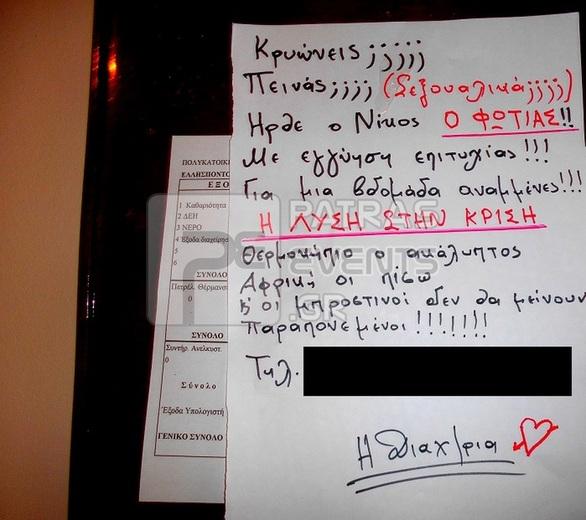 Κρυώνεις;;;;;
Πεινάς;;;; (Σεξουαλικά;;;;)
Ηρθε ο Νίκος Ο ΦΩΤΙΑΣ!!
Με εγγύηση επιτυχίας!!!
Για μια βδομάδα αναμμένες!!!
Η ΛΥΣΗ ΣΤΗΝ ΚΡΙΣΗ
Θερμοκήπιο ο ακάλυπτος
Αφρική οι πίσω
οι μπροστινοί δεν θα μείνουν
παραπονεμένοι!!!!!!!
Τηλ.
Η Διαχ/ρια
ΠΟΛΥΚΑΤΟΙΚ
ΕΛΛΗΣΠΟΝΤΟ
ΕΞΟ
1 Καθαριότητα
2 ΔΕΗ
3 ΝΕΡΟ
4 Εξοδα διαχείρησ
5
6
ΣΥΝΟΛΟ
Πετρέλ. Θέρμανσ
0
ΣΥΝΟΛΟ
Συντήρ. Ανελκυστ.
0
Σύνολο
Έξοδα Υπολογιστή
ΓΕΝΙΚΟ ΣΥΝΟΛΟ
PATRAS
EVENTS
.GR